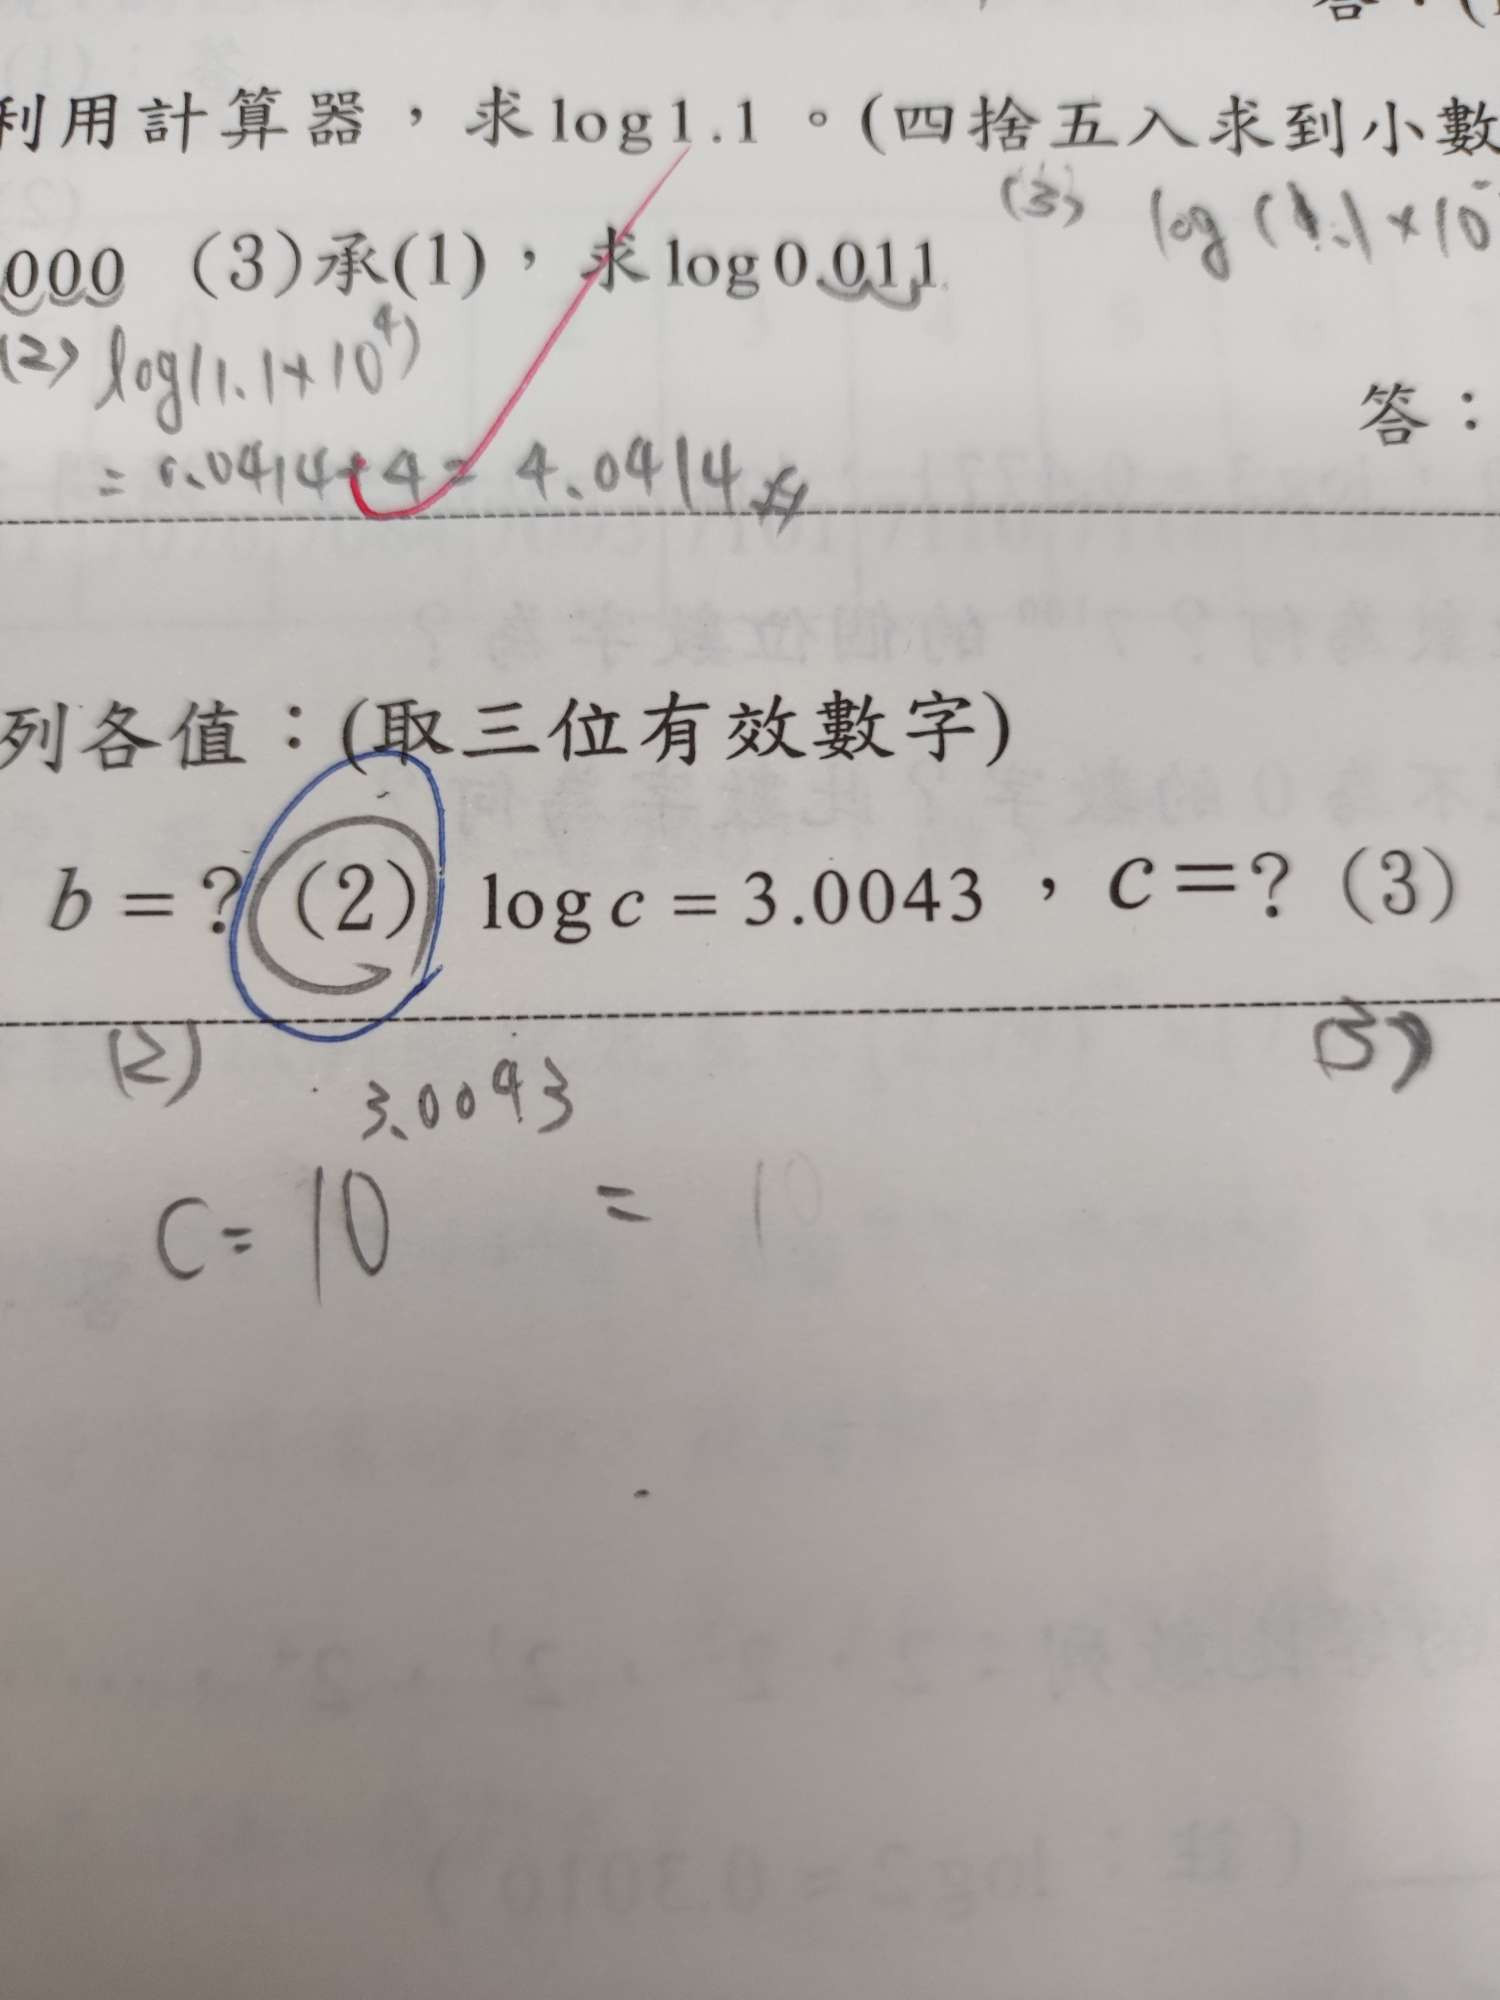 答：(
利用計算器，求log1.1。(四捨五入求到小數
(3) log(1.1×10⁻
000 (3)承(1)，求log0.011
(2) log(1.1×10⁴)
答：
= 0.0414+4= 4.0414
列各值：(取三位有效數字)
b=? (2) log c = 3.0043，c=? (3)
(2) (3)
3.0043
C= 10 = 10